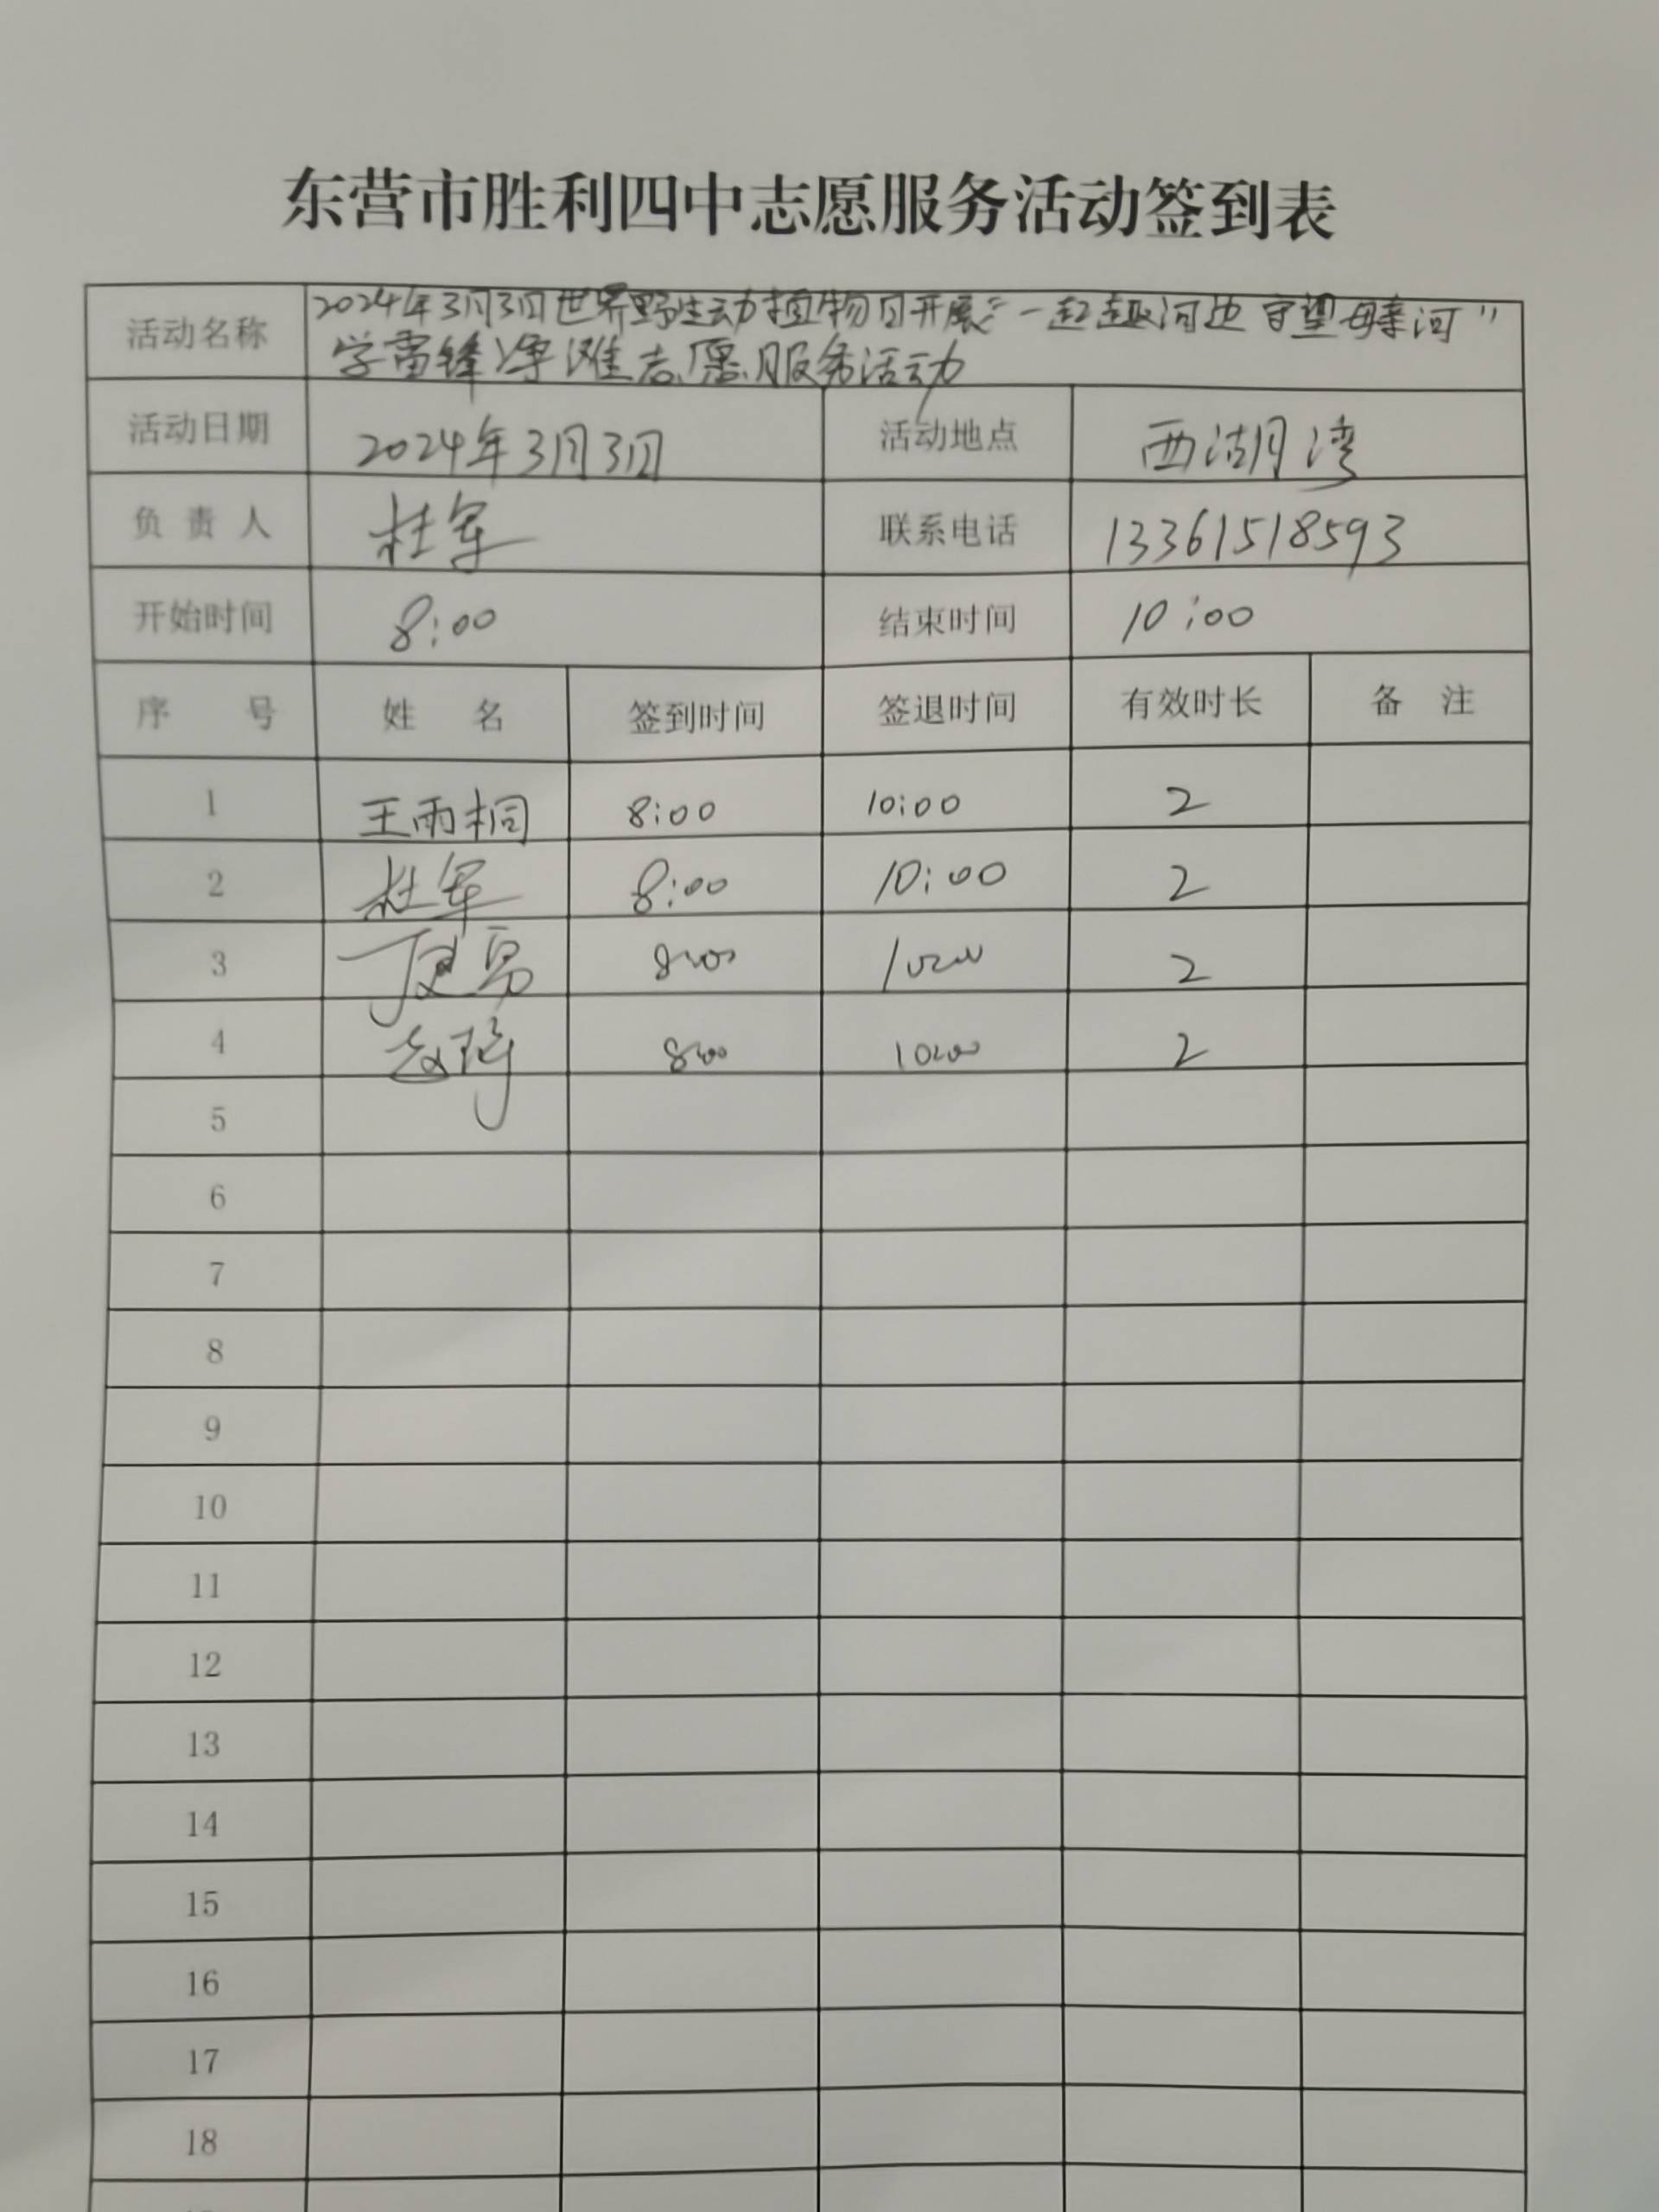 东营市胜利四中志愿服务活动签到表
活动名称 2024年3月3日世界野生动植物日开展“一起趣河边 守望母亲河”
学雷锋净滩志愿服务活动
活动日期 2024年3月3日 活动地点 西湖月湾
负责人 杜军 联系电话 13361518593
开始时间 8:00 结束时间 10:00
序号 姓名 签到时间 签退时间 有效时长 备注
1 王雨桐 8:00 10:00 2
2 杜军 8:00 10:00 2
3 8:00 10:00 2
4 8:00 10:00 2
5
6
7
8
9
10
11
12
13
14
15
16
17
18